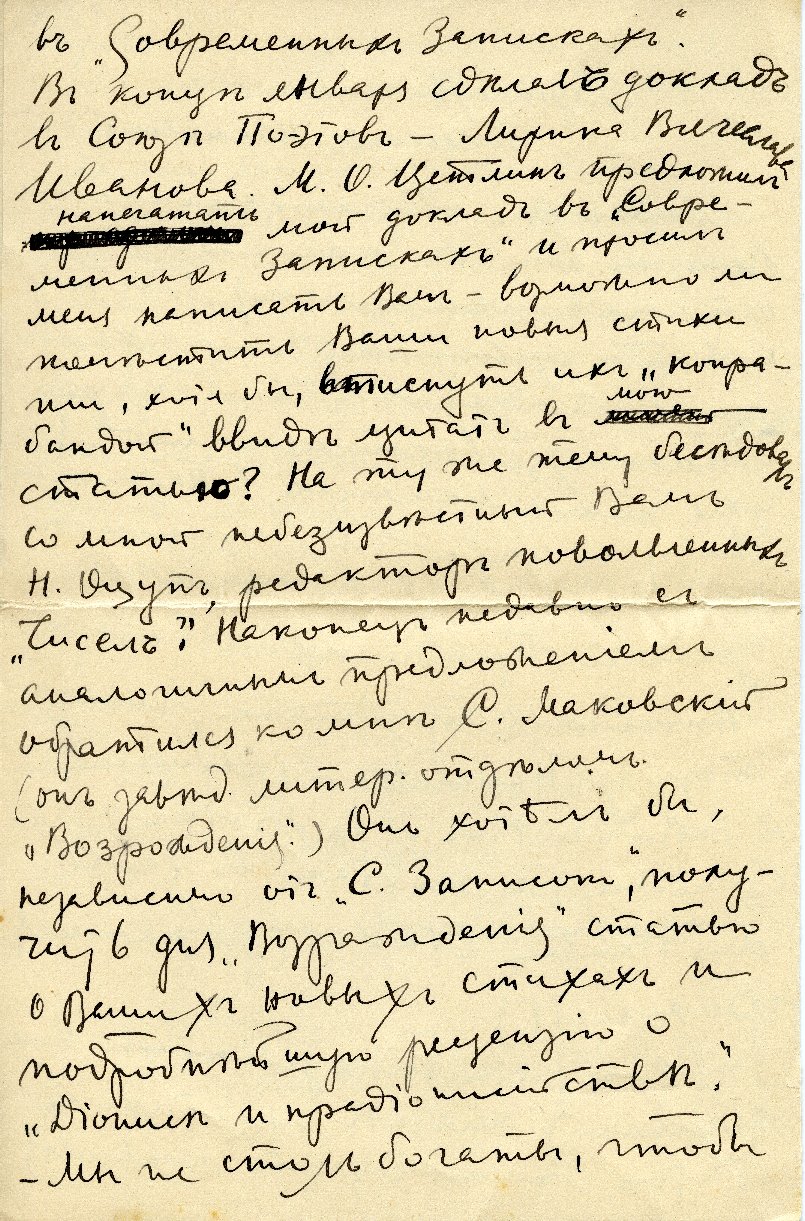 въ „Современныхъ Запискахъ“.
Въ концѣ января сдѣлалъ докладъ
въ Союзѣ Поэтовъ – Лирика Вячеслава
Иванова. М. О. Цетлинъ предложилъ
напечатать мой докладъ въ „Совре-
менныхъ Запискахъ“ и просилъ
меня написать Вамъ – возможно ли
помѣстить Ваши новые стихи
или, хотя бы, втиснуть ихъ „контра-
бандой“ ввидѣ цитатъ въ мою
статью? На ту же тему бесѣдовалъ
со мной небезизвѣстный Вамъ
Н. Оцупъ, редакторъ новоявленныхъ
„Чиселъ“? Наконецъ недавно съ
аналогичнымъ предложеніемъ
обратился ко мнѣ С. Маковскій
(онъ завѣд. литер. отдѣломъ
„Возрожденія“.) Онъ хотѣлъ бы,
независимо отъ „С. Записокъ“, полу-
чить для „Возрожденія“ статью
о Вашихъ новыхъ стихахъ и
подробнѣйшую рецензію о
„Діонисѣ и прадіонисійствѣ“.
– Мы не столь богаты, чтобы